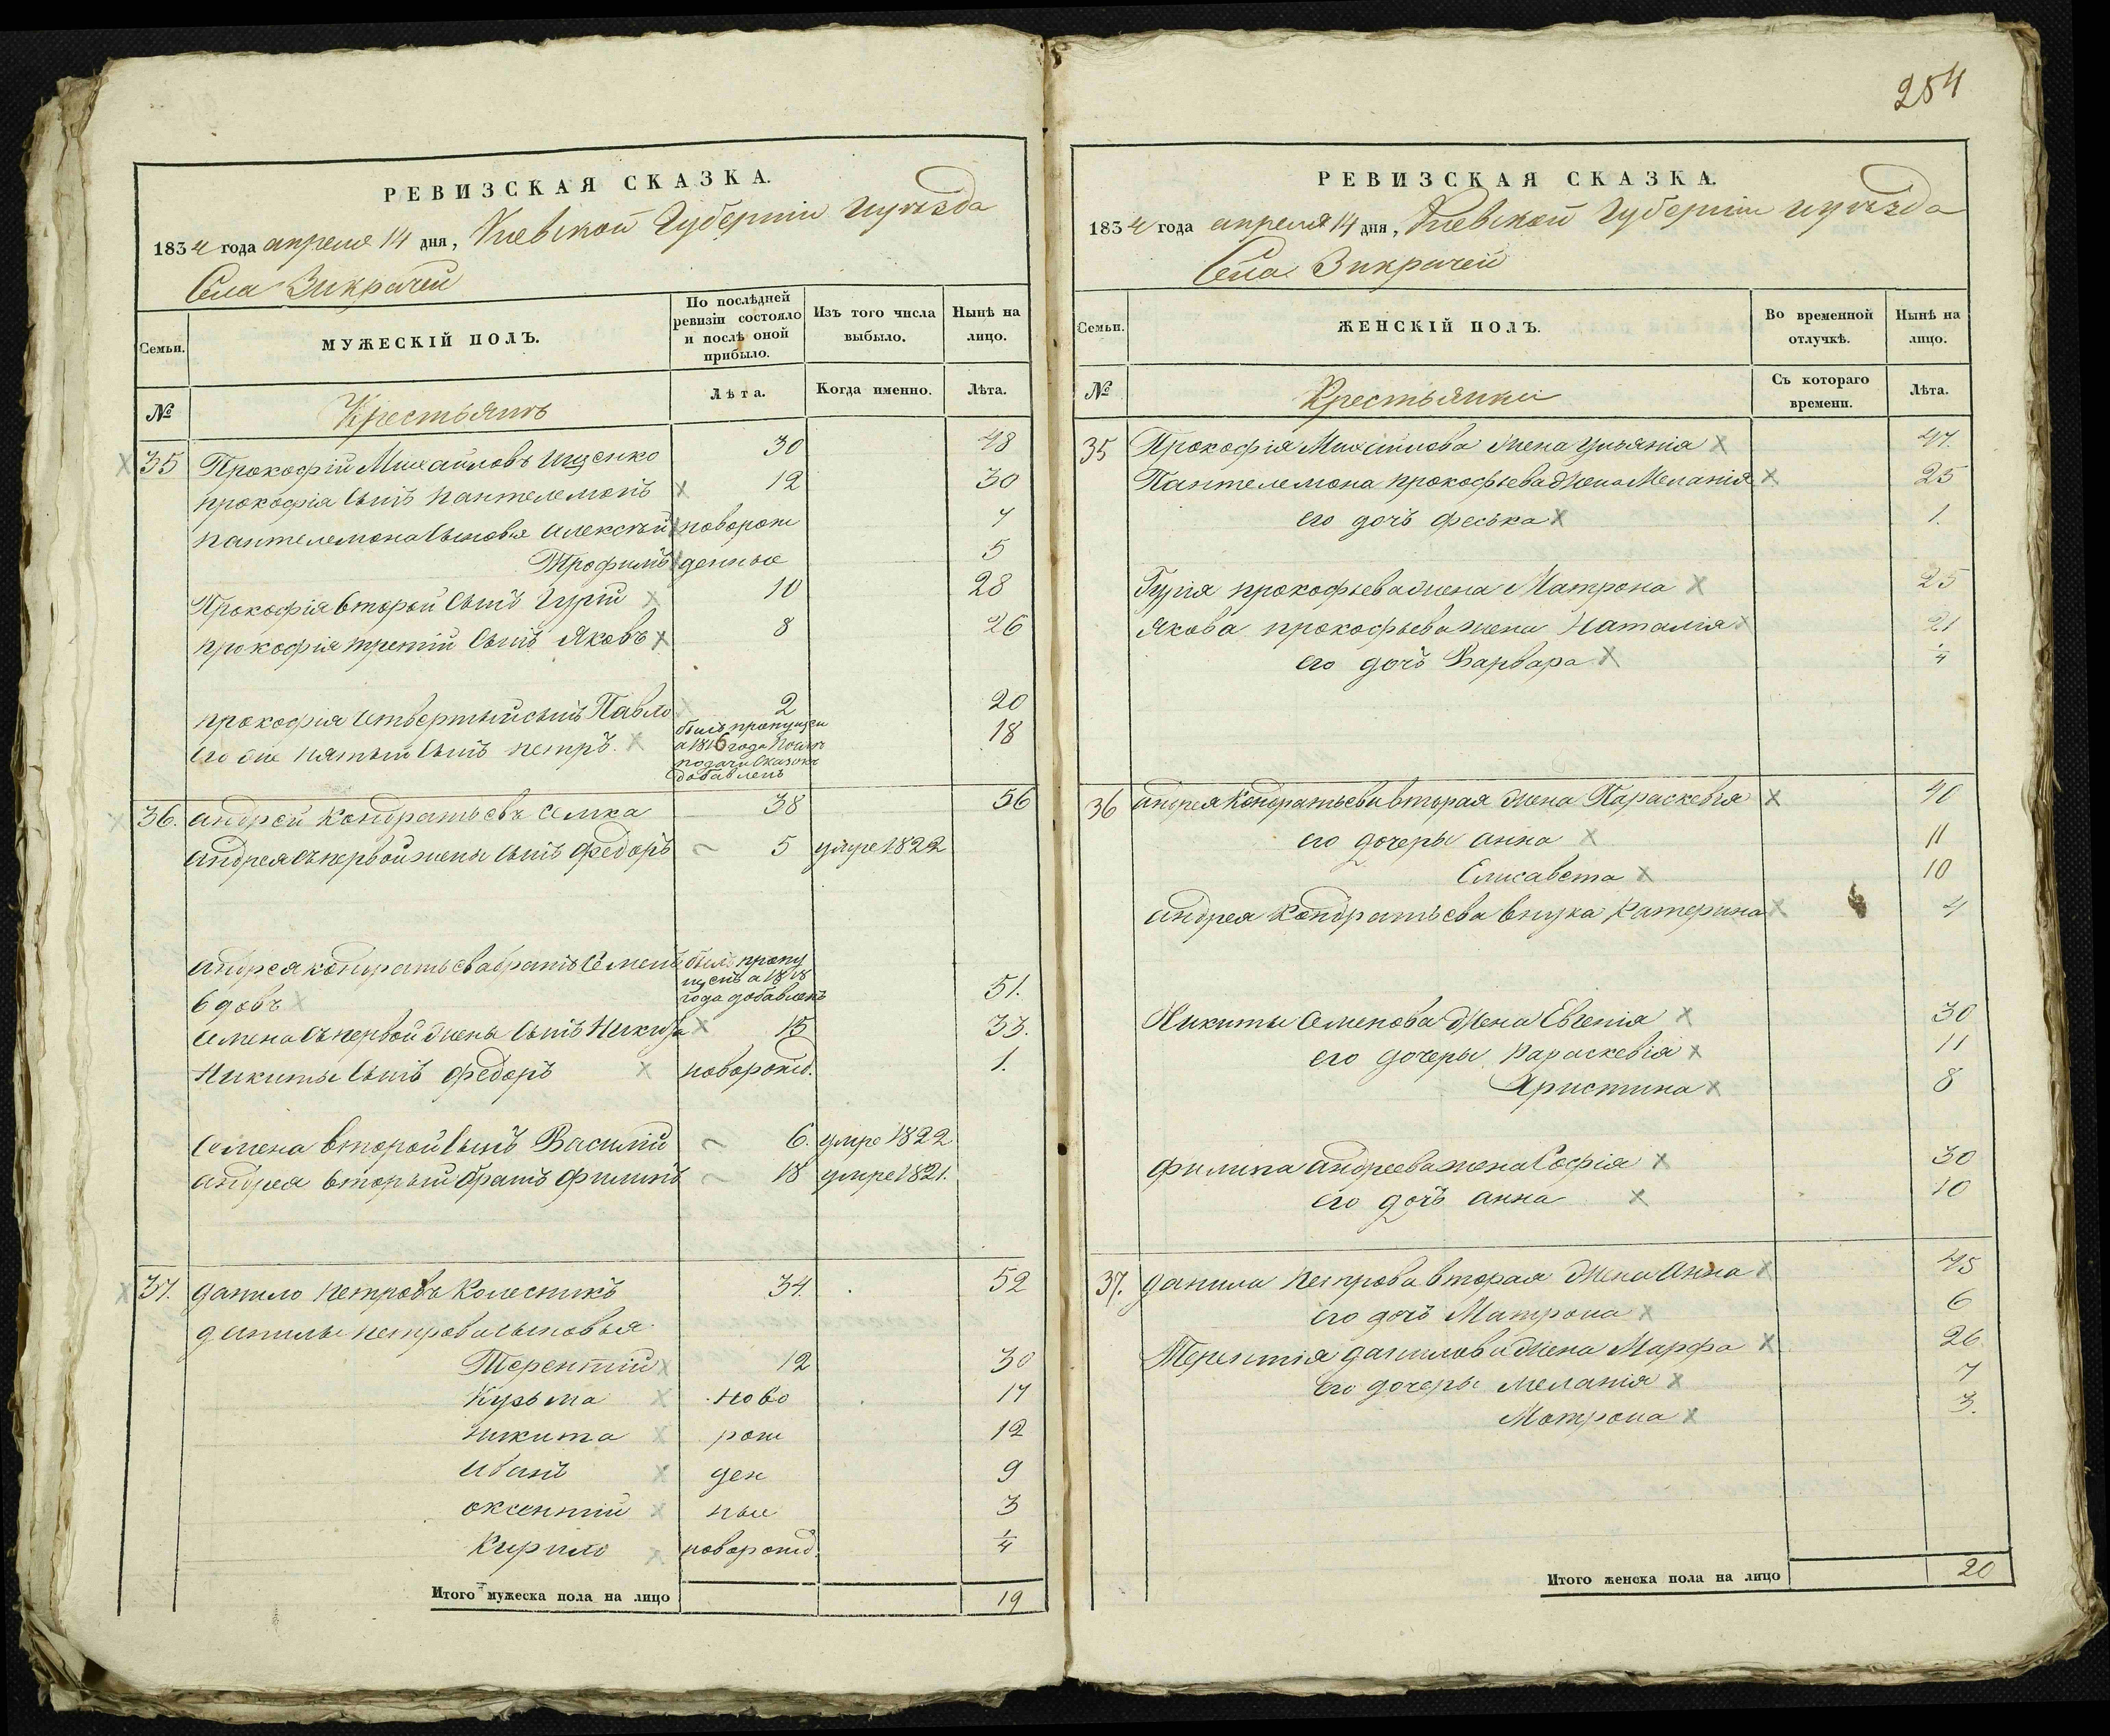 254
РЕВИЗСКАЯ СКАЗКА.
1834 года апреля 14 дня, Киевской Губернии и уезда
Села Зикрачей
Семьи.
МУЖЕСКІЙ ПОЛЪ.
По послѣдней ревизіи состояло и послѣ оной прибыло.
Изъ того числа выбыло.
Нынѣ на лицо.
№
Крестьянъ
Лѣта.
Когда именно.
Лѣта.
35 Прокофій Михайловъ Ищенко 30 48
прокофія сынъ пантелемонъ 12 30
пантелемона сыновья алексѣй новорож 7
Трофимъ денные 5
Прокофія второй сынъ Гурій 10 28
прокофія третій сынъ Яковъ 8 26
прокофія четвертый сынъ Павло 2 20
его же пятый сынъ петръ. былъ пропущен 18
а 1816 года после
подачи сказокъ
добавленъ
36. андрей кондратьевъ семка 38 56
андрея съ первой жены сынъ федоръ 5 умре 1822
андрея кондратьева братъ семенъ былъ пропу
щенъ а 1818
вдовъ года добавленъ 51.
семена съ первой жены сынъ Никита 15 33.
Никиты сынъ федоръ новорожд. 1.
семена второй сынъ Василій 6. умре 1822
андрея вторый братъ филипъ 18 умре 1821.
37. данило петровъ колесникъ 34. 52
данилы петрова сыновья
Терентій 12 30
Кузьма ново 17
никита рож 12
иванъ ден 9
оксентій ные 3
Кирило новорожд. 1/4
Итого мужеска пола на лицо 19
РЕВИЗСКАЯ СКАЗКА.
1834 года апреля 14 дня, Киевской Губернии и уезда
Села Зикрачей
Семьи.
ЖЕНСКІЙ ПОЛЪ.
Во временной отлучкѣ.
Нынѣ на лицо.
№
Крестьянки
Съ котораго времени.
Лѣта.
35 Прокофія Михайлова жена Ульянія 47.
Пантелемона прокофьева жена Меланія 25
его дочь феська 1.
Гурія прокофьева жена Матрона 25
Якова прокофьева жена Наталія 21
его дочь Варвара 1/4
36 андрея кондратьева вторая жена Параскевія 40
его дочеры анна 11
Елисавета 10
андрея кондратьева внука Катерина 4
Никиты семенова жена Евгенія 30
его дочеры параскевія 11
Христина 8
филипа андреева жена Софія 30
его дочь анна 10
37. данила петрова вторая жена Анна 45
его дочь Матрона 6
Терентія данилова жена Марфа 26
его дочеры меланія 7
Матрона 3.
Итого женска пола на лицо 20